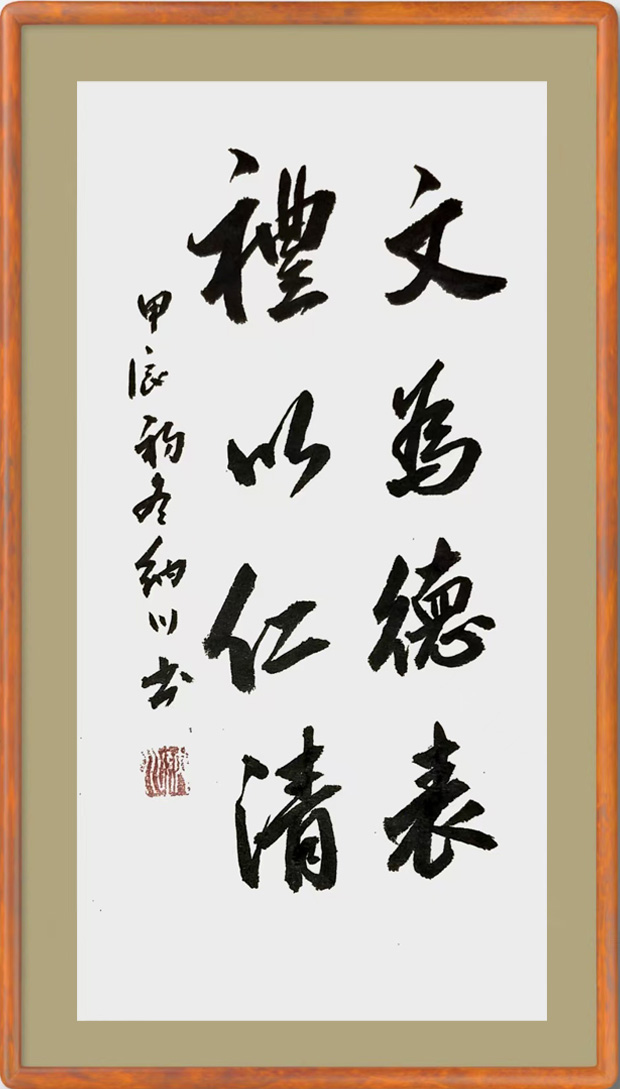 文為德表
禮以仁清
甲辰初冬納川书